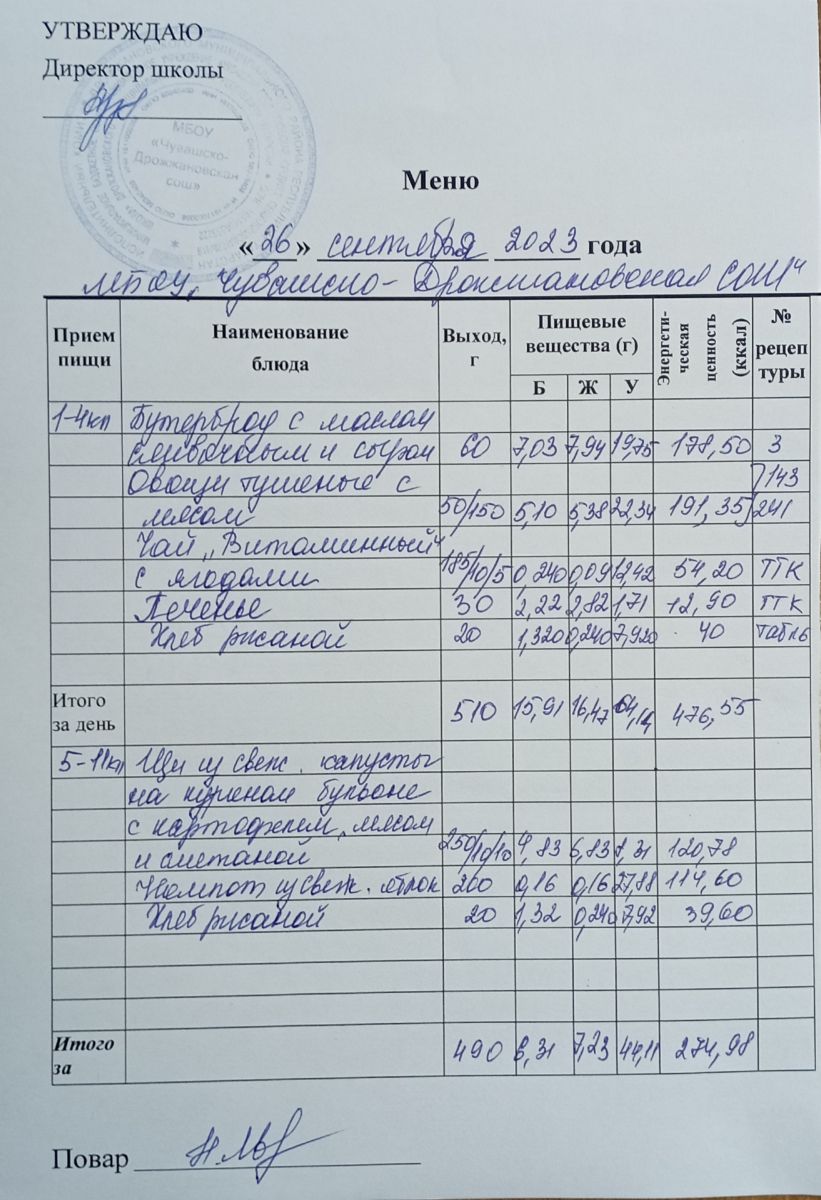 УТВЕРЖДАЮ
Директор школы
МБОУ
«Чувашско-
Дрожжановская
сош»
Меню
«26» сентября 2023 года
МБОУ „Чувашско-Дрожжановская СОШ"
Прием пищи Наименование блюда Выход, г Пищевые вещества (г) Энергети-ческая ценность (ккал) № рецеп туры
Б Ж У
1-4кл Бутерброд с маслом
сливочным и сыром 60 7,03 7,94 19,75 178,50 3
Овощи тушеные с 143
мясом 50/150 5,10 5,38 22,34 191,35 241
Чай „Витаминный"
с ягодами 185/10/5 0,240 0,09 12,42 54,20 ТТК
Печенье 30 2,22 2,82 1,71 12,90 ТТК
Хлеб ржаной 20 1,320 0,240 7,920 40 табль
Итого
за день 510 15,91 16,47 64,14 476,55
5-11кл Щи из свеж. капусты
на курином бульоне
с картофелем, мясом
и сметаной 250/10/10 4,83 6,83 8,31 120,78
Компот из свеж. яблок 200 0,16 0,16 27,88 114,60
Хлеб ржаной 20 1,32 0,240 7,92 39,60
Итого
за 490 6,31 7,23 44,11 274,98
Повар